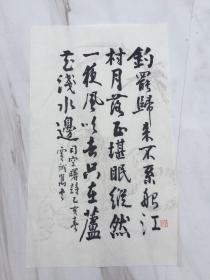 釣罷歸來不系船江
村月落正堪眠縱然
一夜风吹去只在蘆
花淺水邊 司空曙詩